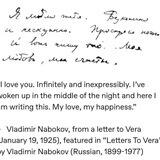 Я люблю тебя. Бесконечно
и несказанно. Проснулся ночью
и вот пишу это. Моя
любовь, мое счастье.
I love you. Infinitely and inexpressibly. I've
woken up in the middle of the night and here I
am writing this. My love, my happiness.”
- Vladimir Nabokov, from a letter to Vera
(January 19, 1925), featured in "Letters To Vera"
by Vladimir Nabokov (Russian, 1899-1977)